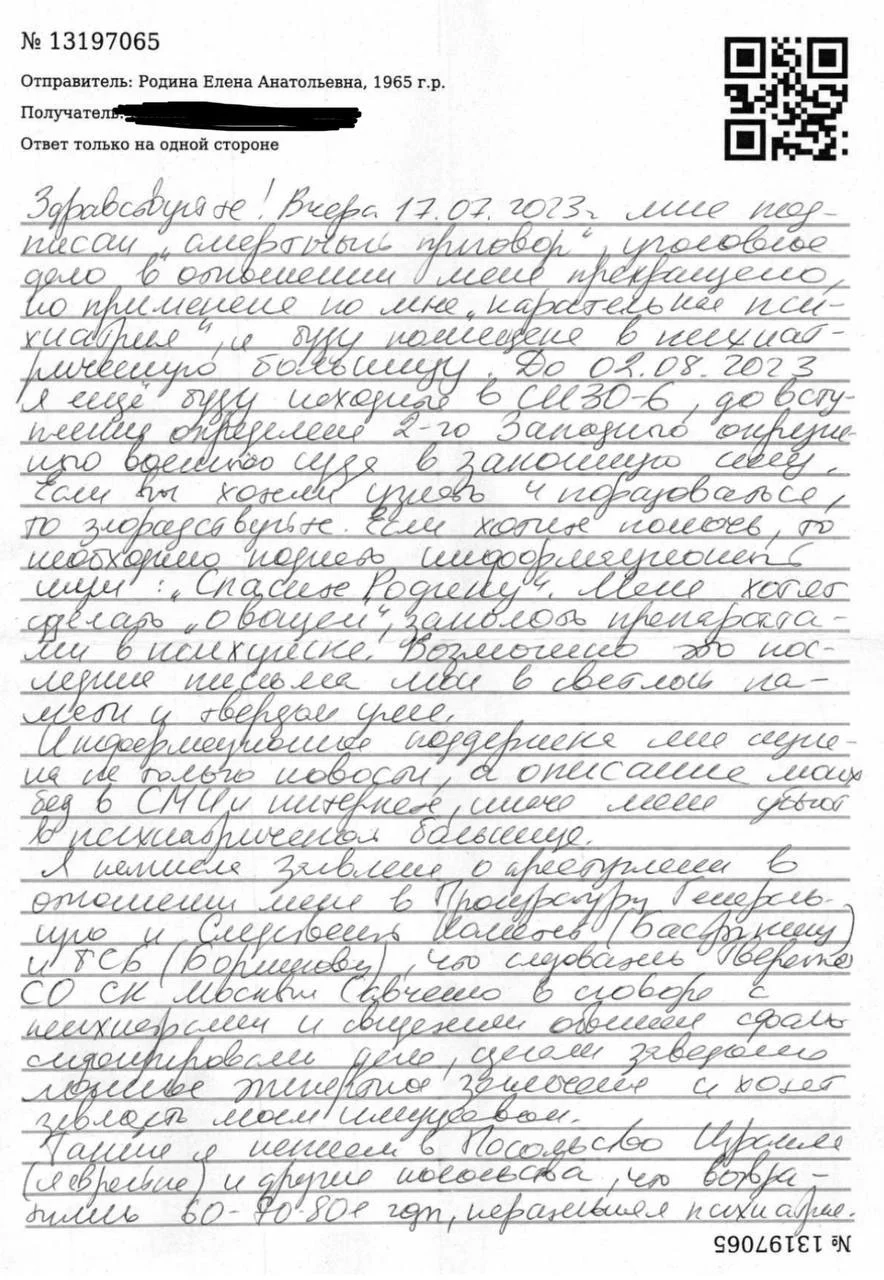 № 13197065
Отправитель: Родина Елена Анатольевна, 1965 г.р.
Получатель:
Ответ только на одной стороне
Здравствуйте! Вчера 17.07.2023г мне под-
писан „смертный приговор", уголовное
дело в отношении меня прекращено,
но применена ко мне „карательная пси-
хиатрия", и буду помещена в психиат-
рическую больницу. До 02.08.2023
я ещё буду находится в СИЗО-6, до всту-
пления определения 2-го Западного окружн-
ного военного суда в законную силу.
Если вы хотели узнать и порадоваться,
то злорадствуйте. Если хотите помочь, то
необходимо поднять информационный
шум: „Спасите Родину". Меня хотят
сделать „овощем", заколоть препарата-
ми в психушке. Возможно это пос-
ледние письма мои в светлой па-
мяти и твердом уме.
Информационная поддержка мне нуж-
на не только новости, а описание моих
бед в СМИ и интернете, иначе меня убьют
в психиатрической больнице.
Я написала заявления о преступлении в
отношении меня в Прокуратуру Генераль-
ную и Следственный комитет (Бастрыкину)
и ФСБ (Бортникову), что следователь
СО СК Москвы Савченко в сговоре с
психиатрами и сфаль-
сифицировали дело, сделали заведомо
ложное экспертное заключение и хотят
завладеть моим имуществом.
Также я написала в Посольство Израиля
(я еврейка) и другие посольства, что возвра-
тились 60-70-80е годы, карательная психиатрия.
№ 13197065